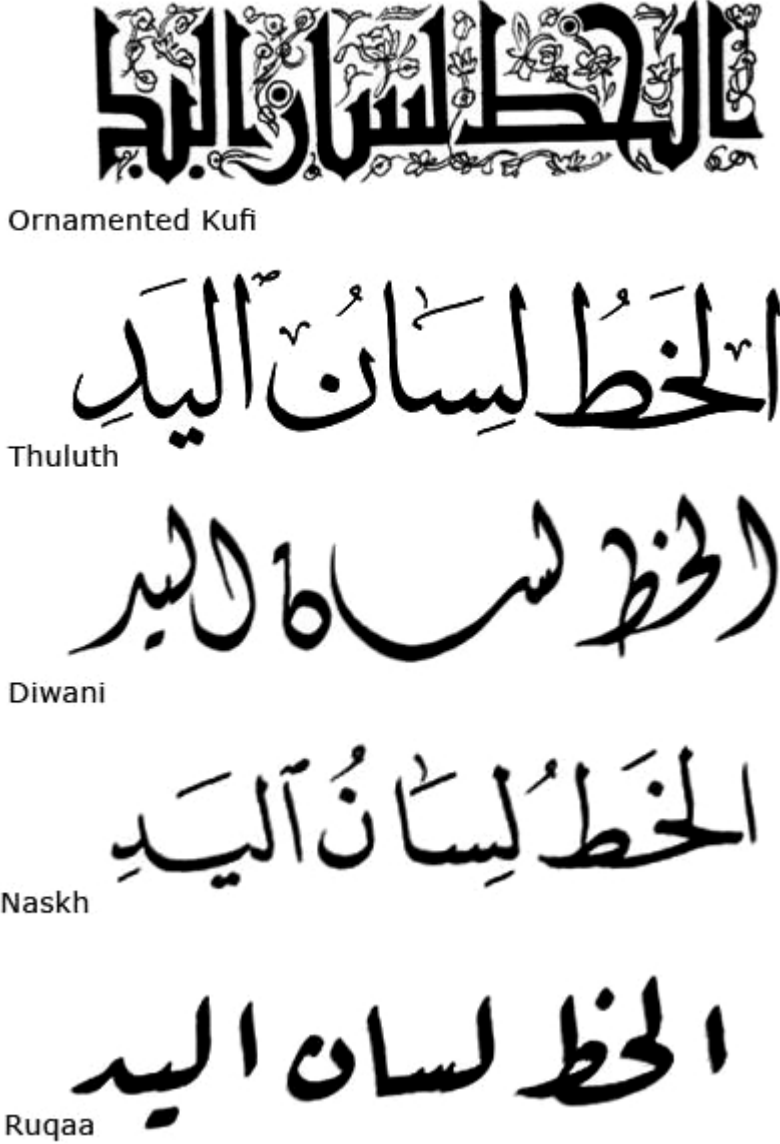 الخط لسان اليد
Ornamented Kufi
الخَطُ لِسَانُ ٱليَدِ
Thuluth
الخط لسان اليد
Diwani
الخَطُ لِسَانُ ٱليَدِ
Naskh
الخط لسان اليد
Ruqaa